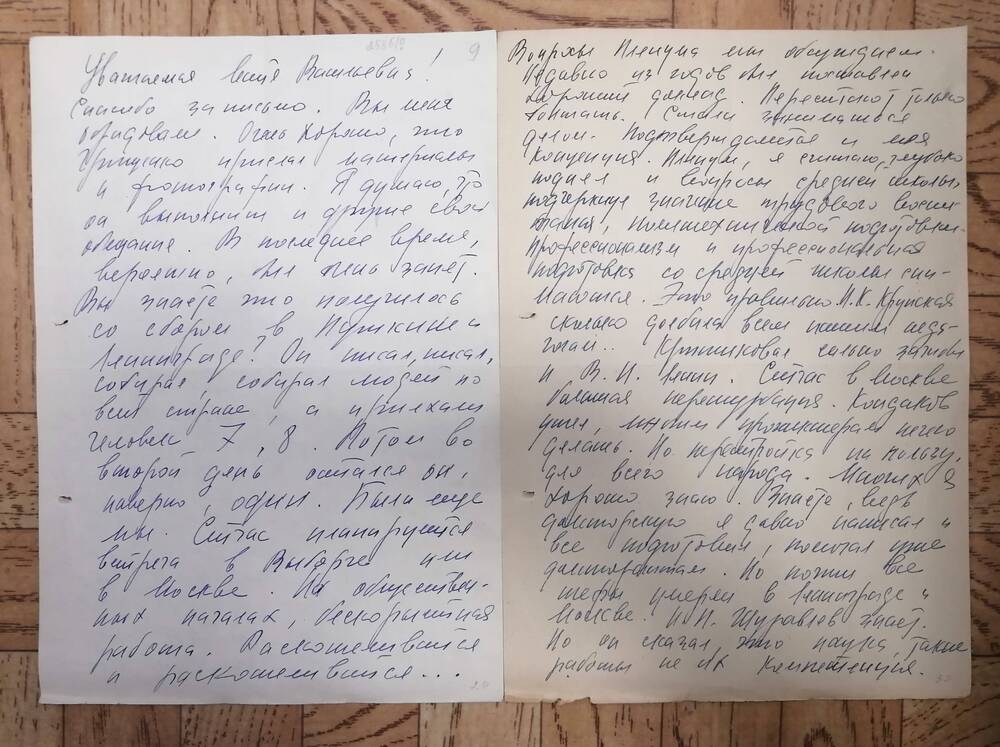 9
Уважаемая Васильевна!
Спасибо за письмо. Вы меня
обрадовали. Очень хорошо, что
Грищенко прислал материалы
и фотографии. Я думаю, что
он выполнит и другие свои
обещание. В последнее время,
вероятно, был очень занят.
Вы знаете что получилось
со сбором в Пушкине и
Ленинграде? Он писал, писал,
собирал, собирал людей по
всей стране, а приехали
человек 7, 8. Потом во
второй день остался он,
наверно, один. Была еще
мы. Сейчас планируется
встреча в Выборге или
в Москве. На обществен-
ных началах, бескорыстная
работа. Раскошеливайся
и раскошеливайся...
Вопросы Пленума мы обсуждаем.
Недавно из годов был поставлен
хороший доклад. Перестают только
болтать. Стали заниматься
делом. Подтверждается и моя
концепция. Пленум, я считаю, глубоко
поднял и вопросы средней школы,
подчеркнув значение трудового воспи-
тания, политехнической подготовки.
Профессионализм и профессиональная
подготовка со средней школы
Это правильно. Н.К. Крупская
сколько долбила всем нашим педа-
гогам..
и В. И. Ленин. Сейчас в Москве
большая Кондаков
ушел, многим нечего
делать. Но перестройка на пользу,
для всего народа. Многих я
хорошо знаю. Знаете, ведь
докторскую я давно написал и
все подготовил, помогал уже
докторантам. Но почти все
шефы умерли в Ленинграде и
Москве. Ю.П. Журавлев знает.
Но он сказал, что наука, такие
работы не их компетенция.